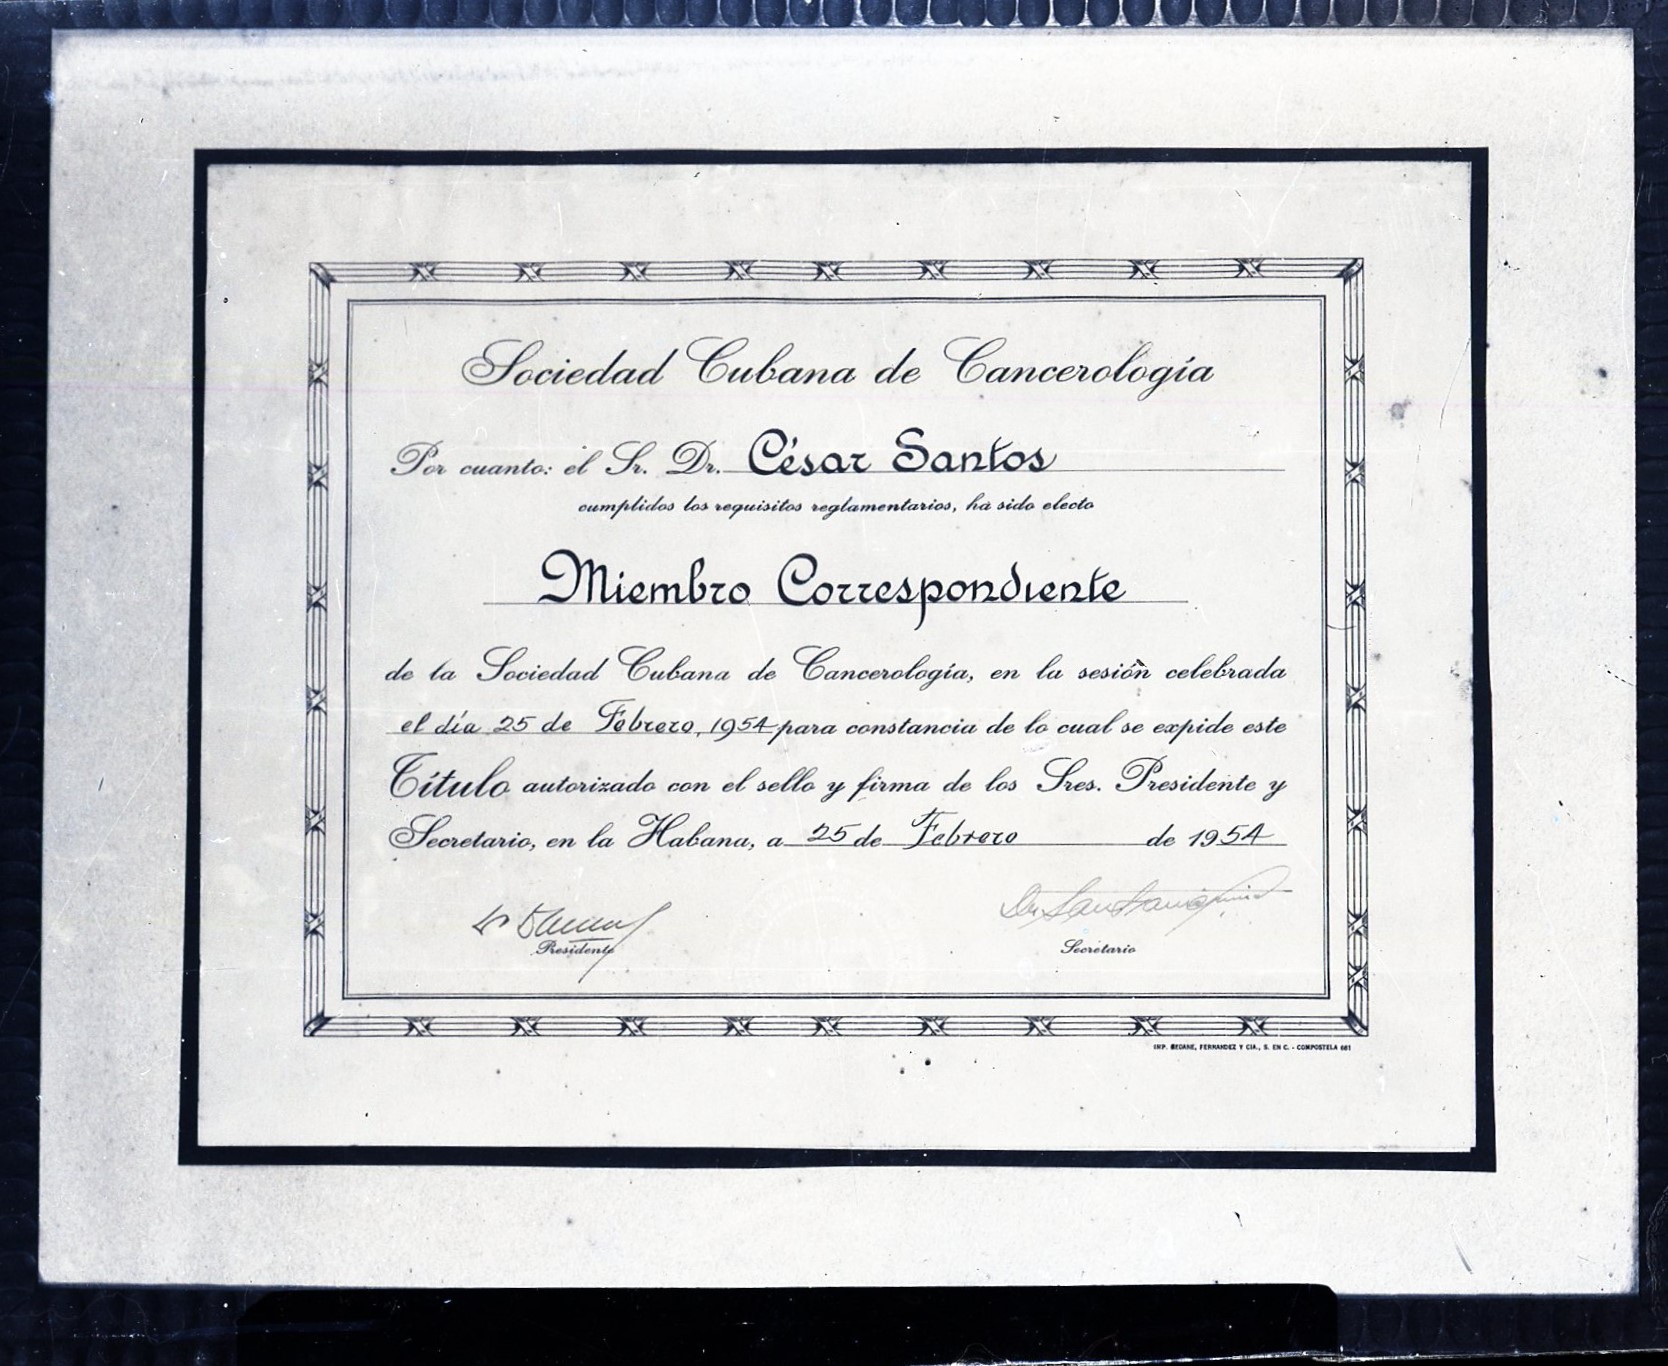 Sociedad Cubana de Cancerología
Por cuanto: el Sr. Dr. César Santos
cumplidos los requisitos reglamentarios, ha sido electo
Miembro Correspondiente
de la Sociedad Cubana de Cancerología, en la sesión celebrada
el día 25 de Febrero, 1954 para constancia de lo cual se expide este
Título autorizado con el sello y firma de los Sres. Presidente y
Secretario, en la Habana, a 25 de Febrero de 1954
Presidente
Secretario
IMP. SEOANE, FERNANDEZ Y CIA., S. EN C. - COMPOSTELA 661